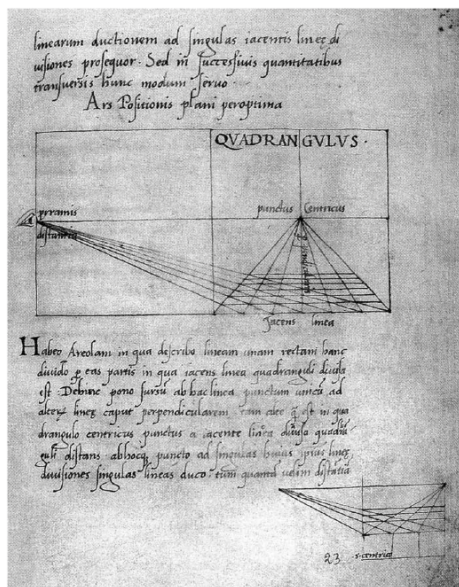 linearum ductionem ad singulas iacentis lineę di
uisiones prosequor · Sed in successiuis quantitatibus
transuersis hunc modum seruo ·
Ars Positionis plani peroptima
QVADRANGVLVS ·
punctus Centricus
distantia
Iacens linea
Habeo Areolam in qua describo lineam unam rectam hanc
diuido p eas partis in qua iacens linea quadranguli diuisa
est · Dehinc pono sursũ ab hac linea punctum unicũ ad
alterę lineę caput perpendicularem tam alte q̃ est in qua
drangulo centricus punctus a iacente linea diuisa
guli distans abhocq puncto ad singulas huius ipsius lineę
diuisiones singulas lineas duco · tum quanta uelim distãtia
23